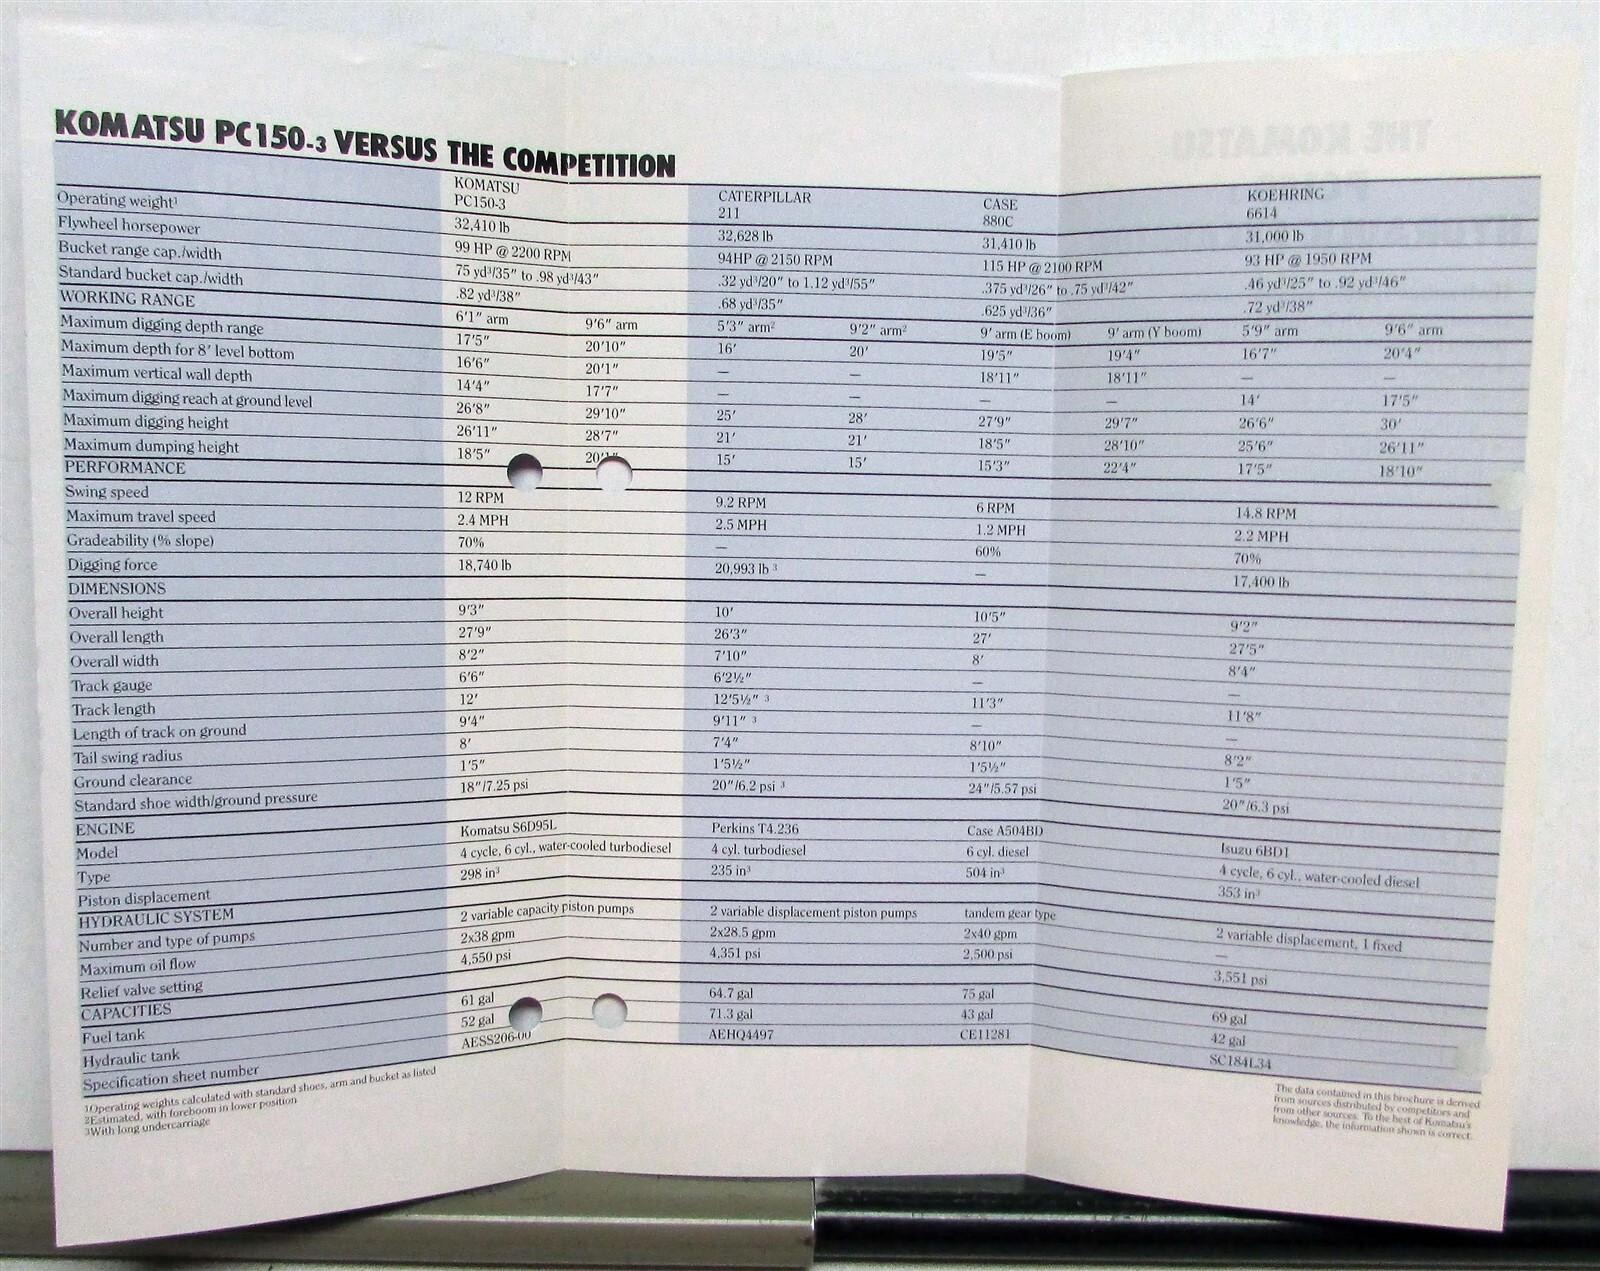 KOMATSU PC150-3 VERSUS THE COMPETITION
KOMATSU PC150-3 CATERPILLAR 211 CASE 880C KOEHRING 6614
Operating weight¹ 32,410 lb 32,628 lb 31,410 lb 31,000 lb
Flywheel horsepower 99 HP @ 2200 RPM 94HP @ 2150 RPM 115 HP @ 2100 RPM 93 HP @ 1950 RPM
Bucket range cap./width 75 yd³/35″ to .98 yd³/43″ .32 yd³/20″ to 1.12 yd³/55″ .375 yd³/26″ to .75 yd³/42″ .46 yd³/25″ to .92 yd³/46″
Standard bucket cap./width .82 yd³/38″ .68 yd³/35″ .625 yd³/36″ .72 yd³/38″
WORKING RANGE 6′1″ arm 9′6″ arm 5′3″ arm² 9′2″ arm² 9′ arm (E boom) 9′ arm (Y boom) 5′9″ arm 9′6″ arm
Maximum digging depth range 17′5″ 20′10″ 16′ 20′ 19′5″ 19′4″ 16′7″ 20′4″
Maximum depth for 8′ level bottom 16′6″ 20′1″ — — 18′11″ 18′11″ — —
Maximum vertical wall depth 14′4″ 17′7″ — — — — 14′ 17′5″
Maximum digging reach at ground level 26′8″ 29′10″ 25′ 28′ 27′9″ 29′7″ 26′6″ 30′
Maximum digging height 26′11″ 28′7″ 21′ 21′ 18′5″ 28′10″ 25′6″ 26′11″
Maximum dumping height 18′5″ 20′1″ 15′ 15′ 15′3″ 22′4″ 17′5″ 18′10″
PERFORMANCE
Swing speed 12 RPM 9.2 RPM 6 RPM 14.8 RPM
Maximum travel speed 2.4 MPH 2.5 MPH 1.2 MPH 2.2 MPH
Gradeability (% slope) 70% — 60% 70%
Digging force 18,740 lb 20,993 lb ³ — 17,400 lb
DIMENSIONS
Overall height 9′3″ 10′ 10′5″ 9′2″
Overall length 27′9″ 26′3″ 27′ 27′5″
Overall width 8′2″ 7′10″ 8′ 8′4″
Track gauge 6′6″ 6′2½″ — —
Track length 12′ 12′5½″ ³ 11′3″ 11′8″
Length of track on ground 9′4″ 9′11″ ³ — —
Tail swing radius 8′ 7′4″ 8′10″ 8′2″
Ground clearance 1′5″ 1′5½″ 1′5½″ 1′5″
Standard shoe width/ground pressure 18″/7.25 psi 20″/6.2 psi ³ 24″/5.57 psi 20″/6.3 psi
ENGINE
Model Komatsu S6D95L Perkins T4.236 Case A504BD Isuzu 6BD1
Type 4 cycle, 6 cyl., water-cooled turbodiesel 4 cyl. turbodiesel 6 cyl. diesel 4 cycle, 6 cyl., water-cooled diesel
Piston displacement 298 in³ 235 in³ 504 in³ 353 in³
HYDRAULIC SYSTEM
Number and type of pumps 2 variable capacity piston pumps 2 variable displacement piston pumps tandem gear type 2 variable displacement, 1 fixed
Maximum oil flow 2x38 gpm 2x28.5 gpm 2x40 gpm —
Relief valve setting 4,550 psi 4,351 psi 2,500 psi 3,551 psi
CAPACITIES
Fuel tank 61 gal 64.7 gal 75 gal 69 gal
Hydraulic tank 52 gal 71.3 gal 43 gal 42 gal
Specification sheet number AESS206-00 AEHQ4497 CE11281 SC184L34
1Operating weights calculated with standard shoes, arm and bucket as listed
2Estimated, with foreboom in lower position
3With long undercarriage
The data contained in this brochure is derived
from sources distributed by competitors and
from other sources. To the best of Komatsu's
knowledge, the information shown is correct.